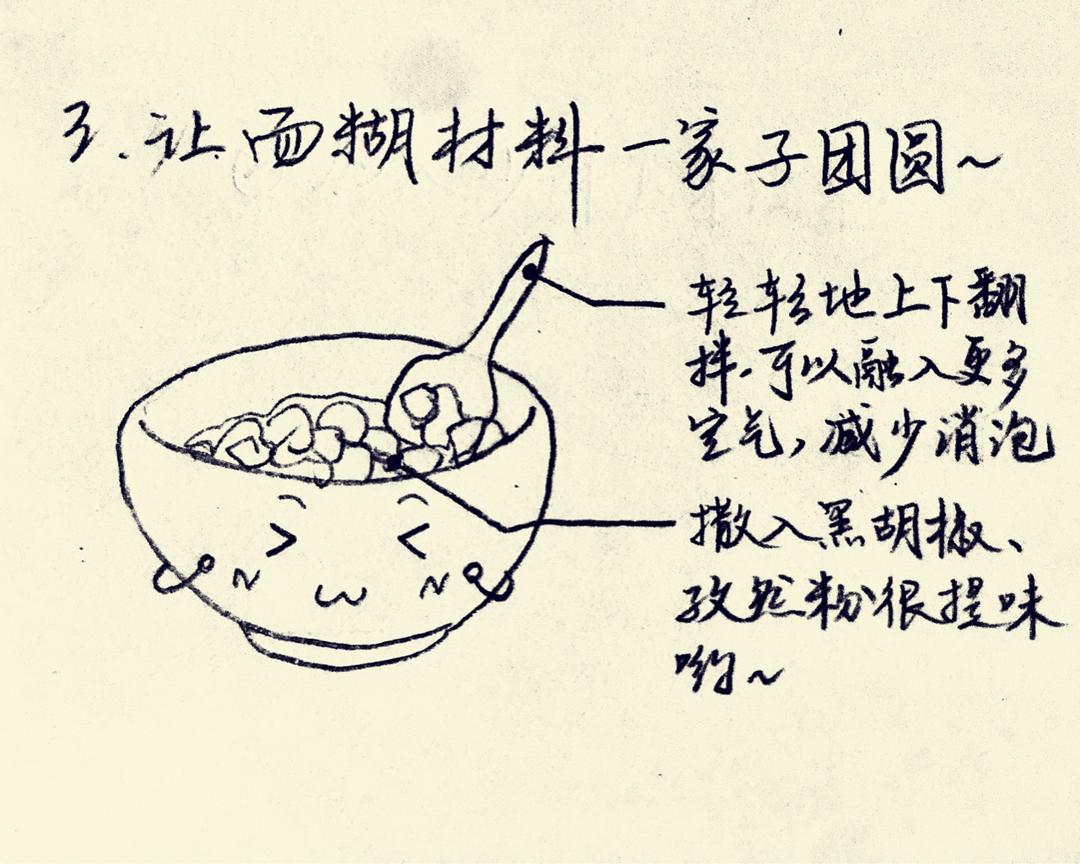 3.让面糊材料一家子团圆~
轻轻地上下翻
拌.可以融入更多
空气,减少消泡
撒入黑胡椒、
孜然粉很提味
哟~